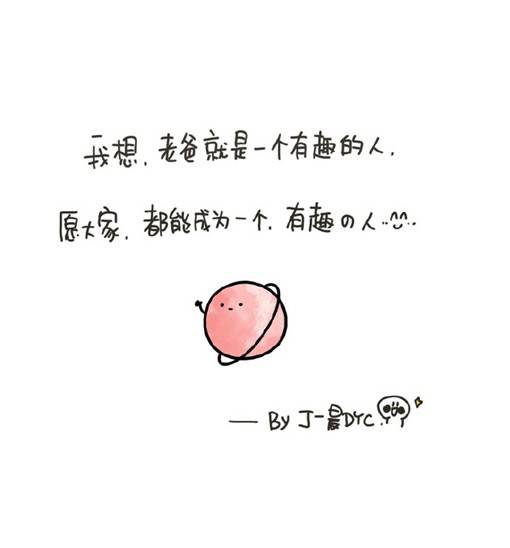 我想，老爸就是一个有趣的人．
愿大家，都能成为一个．有趣の人
—— By 丁一晨DYC